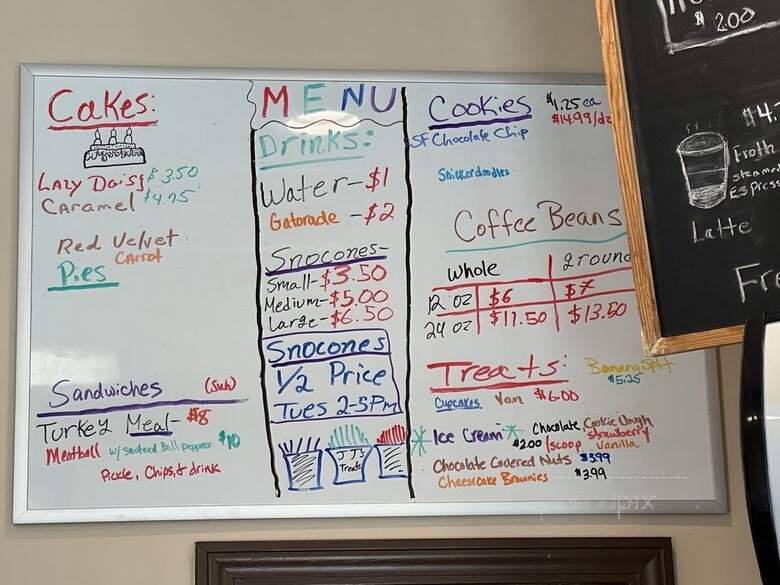 Cakes:
Lazy Daisy $3.50
Caramel $4.75
Red Velvet
Carrot
Pies
Sandwiches (Sub)
Turkey Meal- $8
Meatball w/ Sauteed Bell Peppers $10
Pickle, Chips, & drink
MENU
Drinks:
Water-$1
Gatorade -$2
Snocones-
Small-$3.50
Medium-$5.00
Large-$6.50
Snocones
1/2 Price
Tues 2-5PM
JJ's
Treats
Cookies $1.25 ea
$14.99/dz
SF Chocolate Chip
Snickerdoodles
Coffee Beans
whole ground
12 oz $6 $7
24 oz $11.50 $13.50
Treats: Banana Split
$5.25
Cupcakes Van $6.00
Ice Cream Chocolate, Cookie Dough
$2.00/scoop Strawberry
Vanilla
Chocolate Covered Nuts $5.99
Cheesecake Brownies $3.99
$2.00
$4.
Froth
steamed
Espress
Latte
Fre